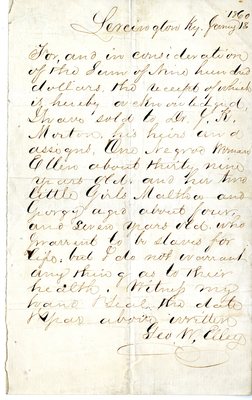 1860
Lexington Ky. Jany 18
For, and in consideration
of the Sum of Nine hundred
dollars, the receipt of which
is hereby acknowledged
I have sold to Dr. J. R.
Morton, his heirs and
assigns, One Negro Woman
Ellen about thirty nine
years old, and her two
little Girls Malthia and
Georgia aged about four
and Seven years old, who
I warrent to be slaves for
life, but I do not warrant
any thing as to their
health. Witness my
hand & Seal, the date
& year above written
Geo W.